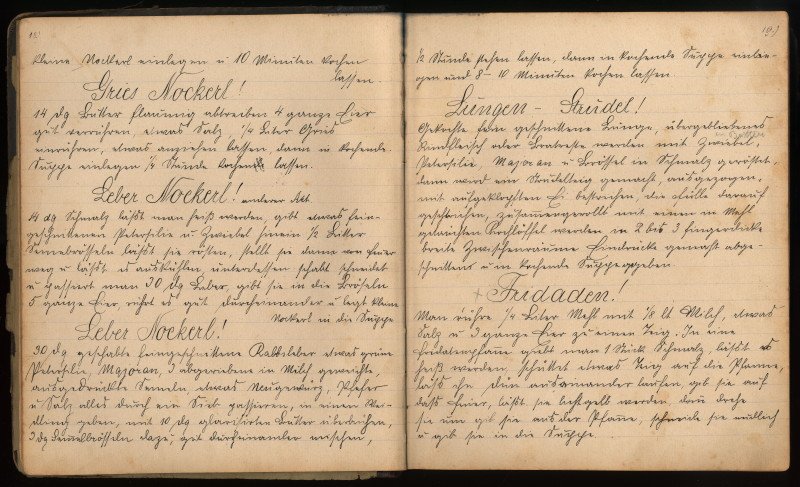 18.)
kleine Nockerl einlegen u 10 Minuten kochen
lassen.
Gries Nockerl!
14 dg Butter flaumig abtreiben 4 ganze Eier
gut verrühren, etwas Salz, 1/4 Liter Gries
einrühren, etwas anziehen lassen, dann in kochende
Suppe einlegen 1/4 Stunde kochen lassen.
Leber Nockerl! anderer Art
4 dg Schmalz läßt man heiß werden, gibt etwas fein-
geschnittenen Petersilie u Zwiebel hinein 1/2 Liter
Semmelbröseln läßt sie rösten, stellt sie dann vom Feuer
weg u läßt auskühlen unterdessen schabt schneidet
u passiert man 30 dg Leber, gibt sie in die Bröseln
5 ganze Eier rührt es gut durcheinander u legt kleine
Nockerl in die Suppe
Leber Nockerl!
30 dg geschabte feingeschnittene Kalbsleber etwas grüne
Petersilie, Majoran, 3 abgeriebene in Milch geweichte,
ausgedrückte Semeln etwas Neugewürz, Pfeffer
u Salz alles durch ein Sieb passieren, in einen Weid-
ling geben, mit 10 dg abtreiben,
3 dg Semmelbröseln dazu, gut durcheinander mischen,
19.)
1/2 Stunde stehen lassen, dann in kochende Suppe einle-
gen und 8-10 Minuten kochen lassen.
Lungen - Strudel!
Gekochte fein geschnittene Lunge, übergebliebenes
Rindfleisch oder Bratreste werden mit Zwiebel,
Petersilie, Majoran u Brösel in Schmalz geröstet,
dann wird ein Strudelteig gemacht, ausgezogen,
mit aufgeklopften Ei bestrichen, die Fülle darauf
gestrichen, zusamengerollt mit einen in Mehl
getauchten Kochlöffel werden in 2 bis 3 fingerdicke
breite Zwischenräume Eindrücke gemacht abge-
schnitten u in kochende Suppe gegeben.
+ Fridaden!
Man rühre 1/4 Liter Mehl mit 1/8 lt Milch, etwas
Salz u 3 ganze Eier zu einen Teig. In eine
Fridatenpfane giebt man 1 Stück Schmalz, läßt es
heiß werden, schüttet etwas Teig auf die Pfanne,
läßt ihn dün auseinander laufen, gib sie auf
das Feuer, läßt sie lichtgelb werden, dan drehe
sie um gib sie aus der Pfane, schneide sie nudlich
u gib sie in die Suppe.